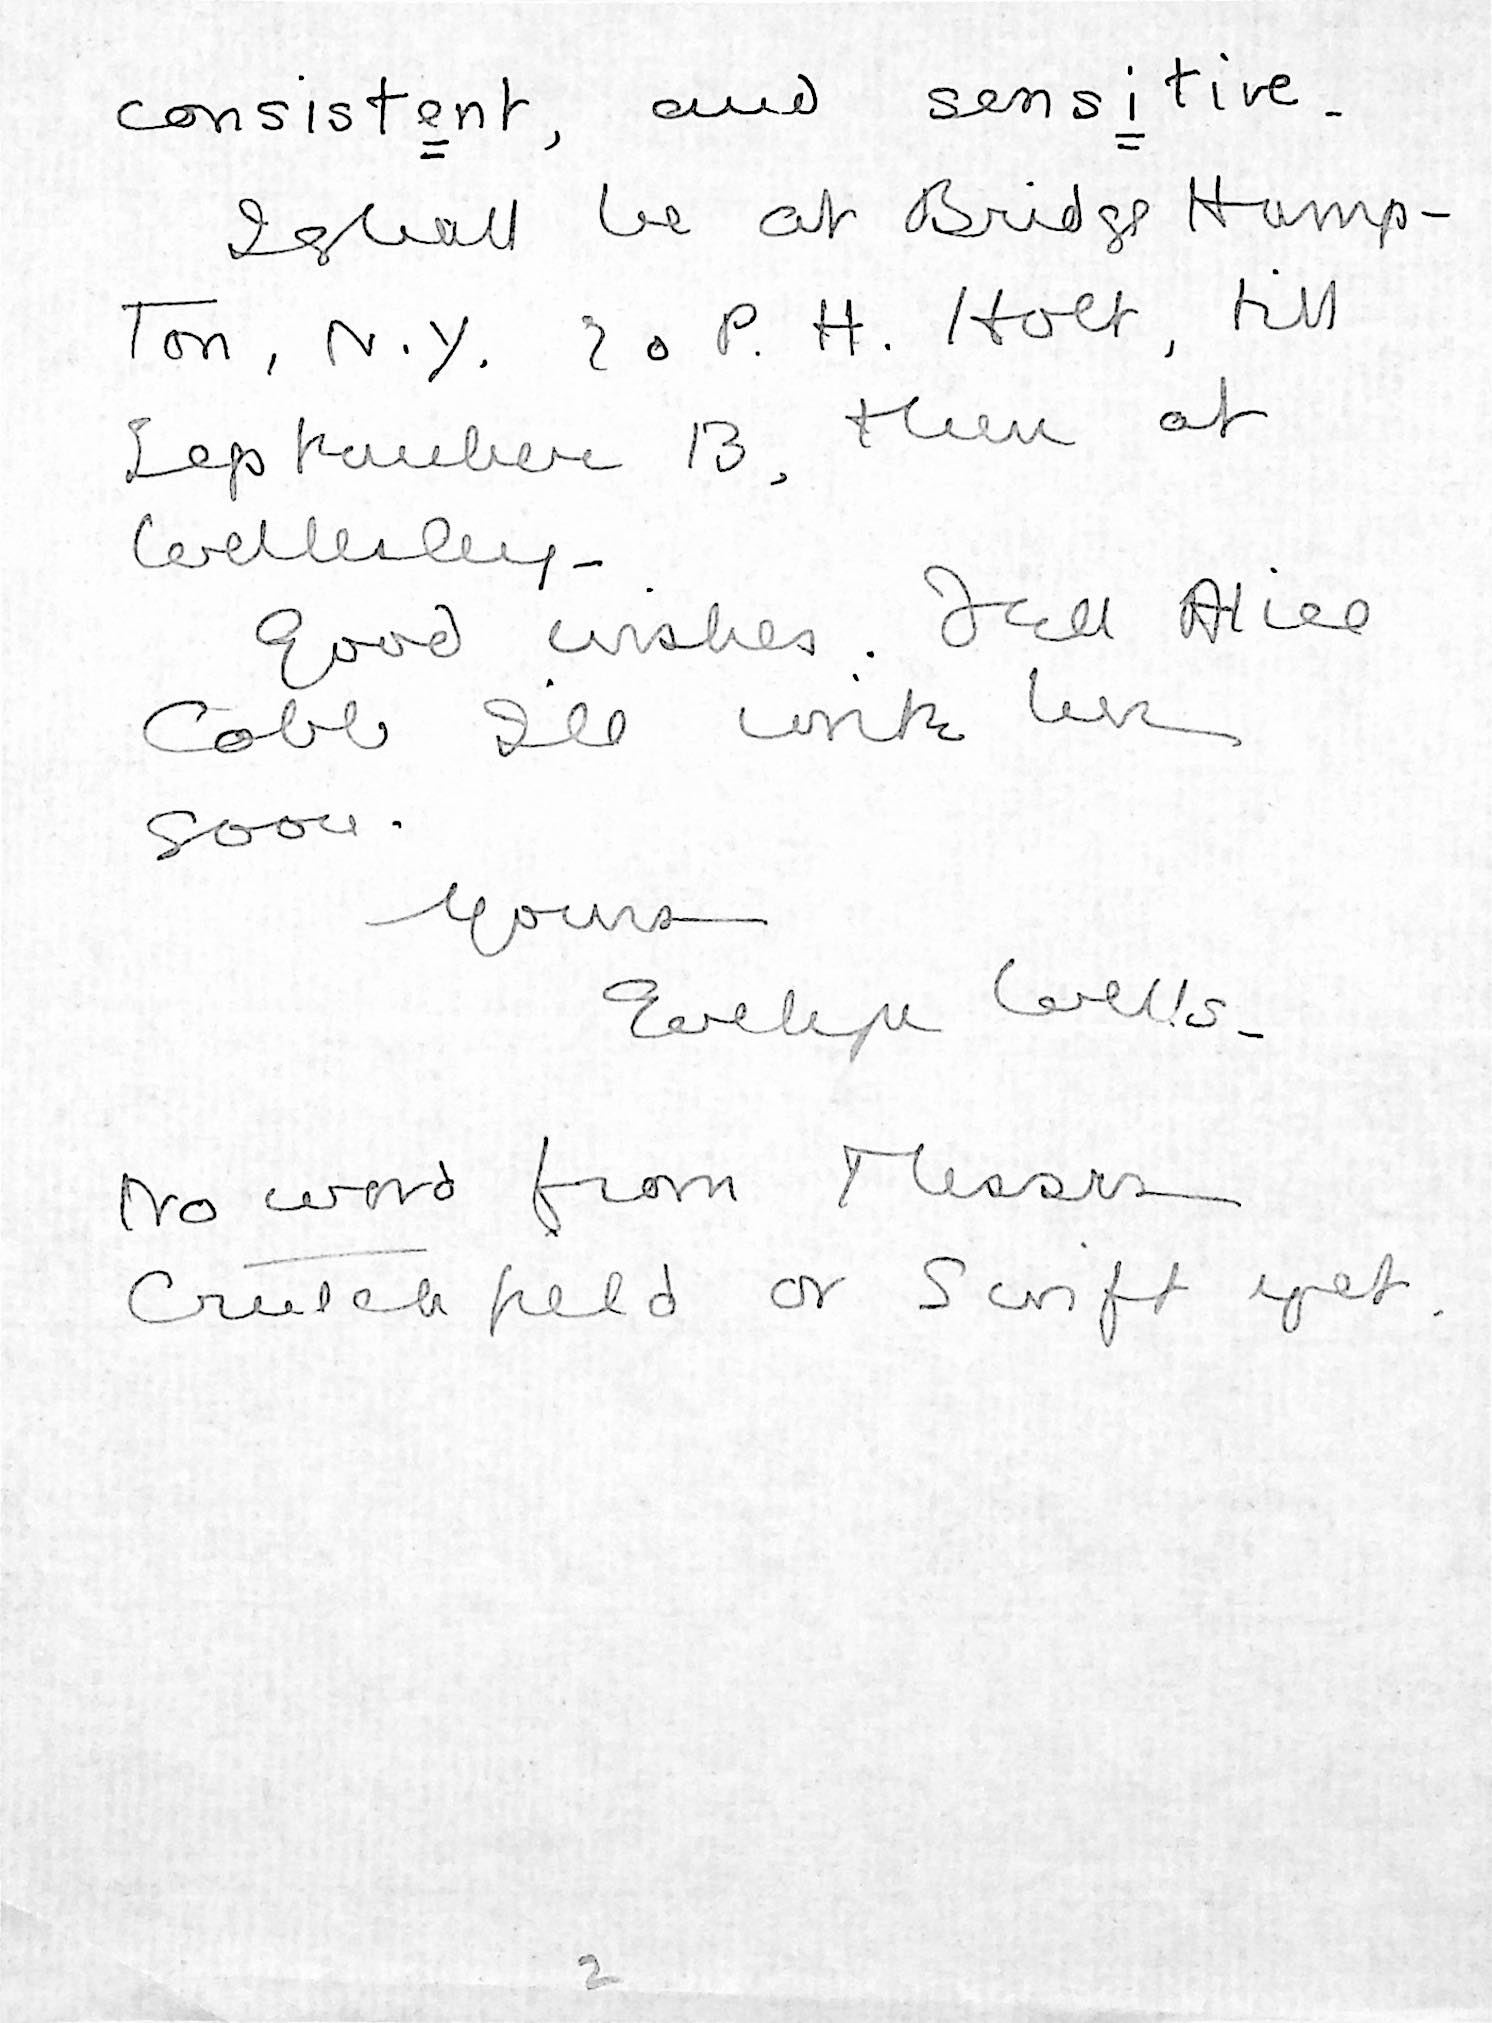 consistent, and sensitive.
I shall be at Bridge Hamp-
Ton, N.Y. c/o P. H. Holt, till
September 13, then at
Wellesley -
Good wishes. Tell Alice
Cobb I'll write her
soon.
Yours
Evelyn Wells -
No word from Messrs
Crutchfield or Swift yet.
2